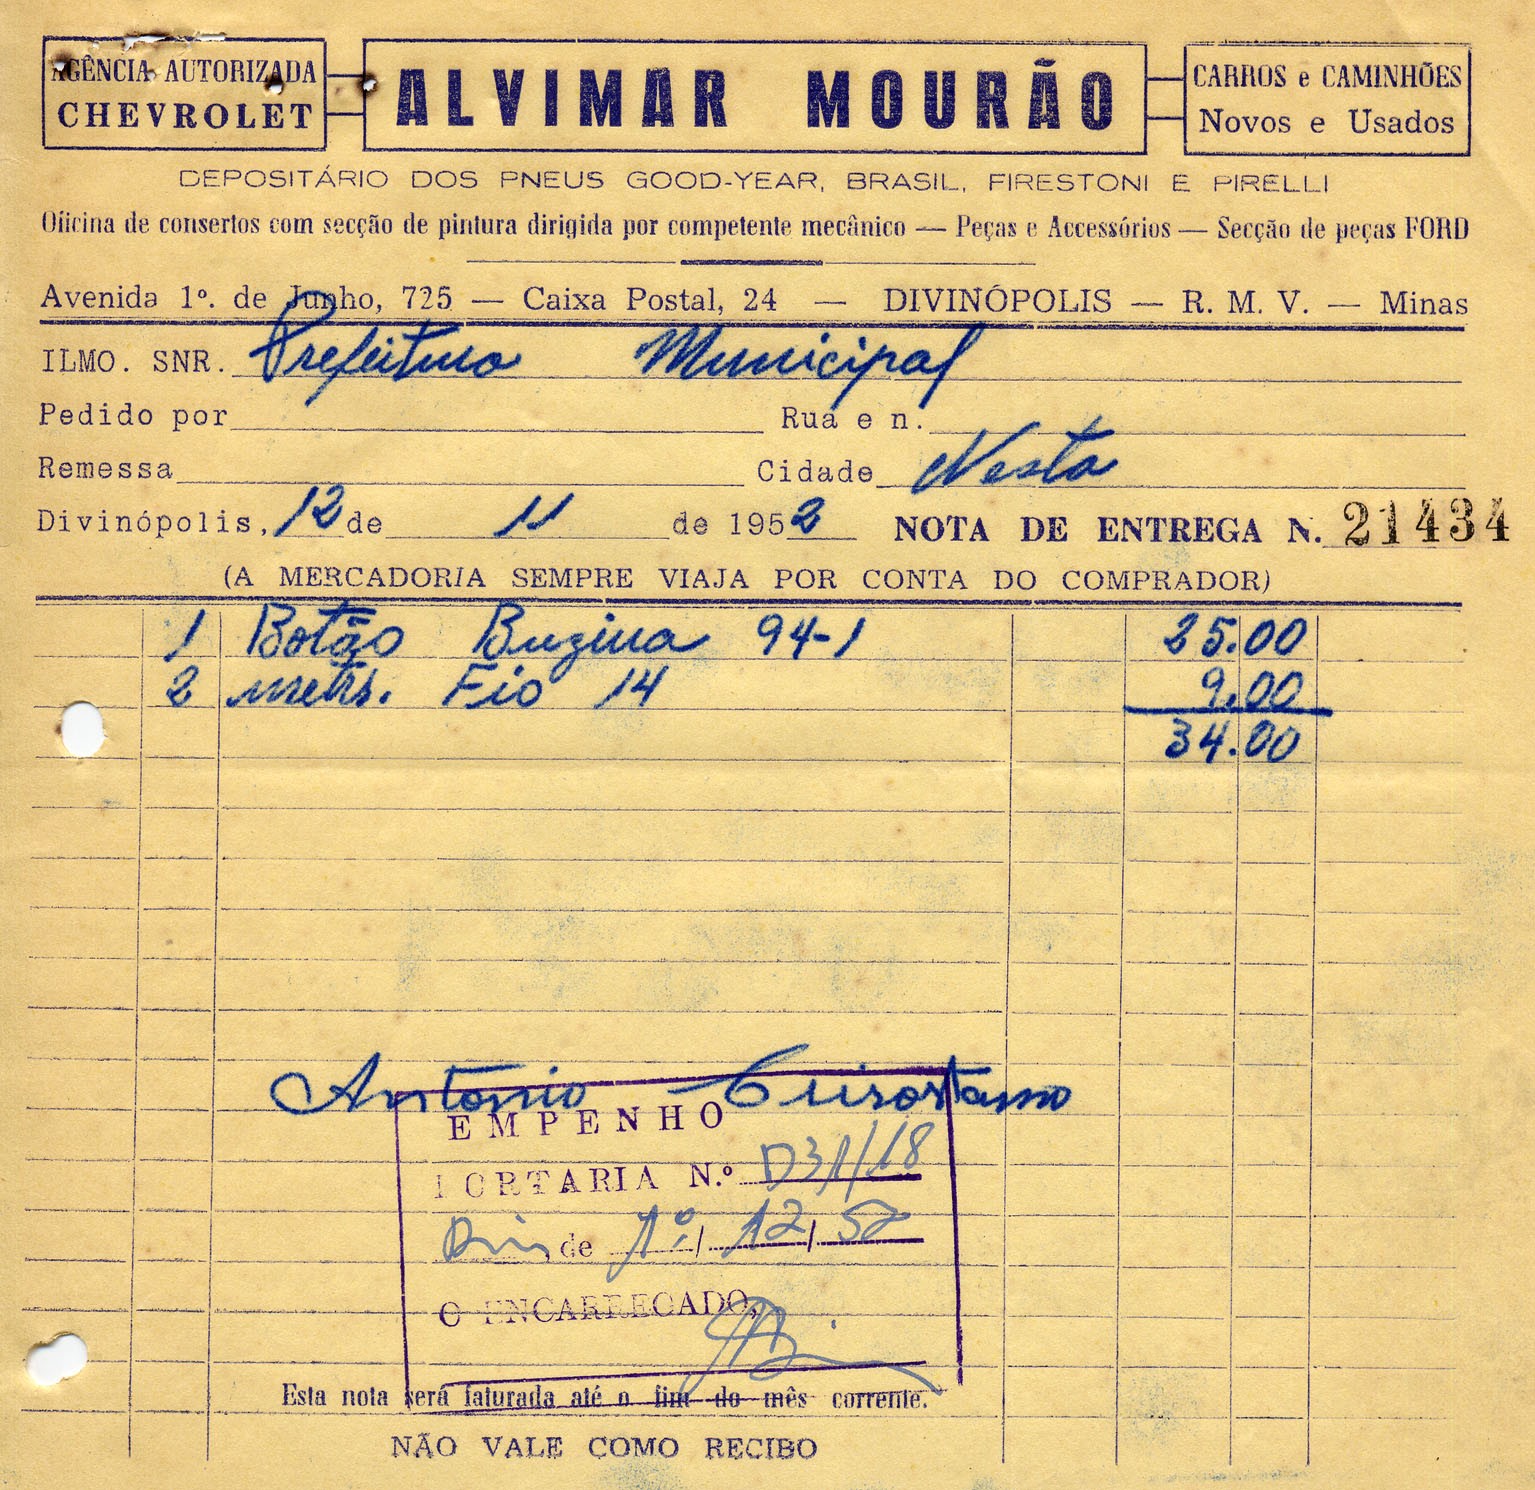 AGÊNCIA AUTORIZADA
CHEVROLET
ALVIMAR MOURÃO
CARROS e CAMINHÕES
Novos e Usados
DEPOSITÁRIO DOS PNEUS GOOD-YEAR, BRASIL, FIRESTONI E PIRELLI
Oficina de consertos com secção de pintura dirigida por competente mecânico — Peças e Accessórios — Secção de peças FORD
Avenida 1º. de Junho, 725 — Caixa Postal, 24 — DIVINÓPOLIS — R. M. V. — Minas
ILMO. SNR. Prefeitura Municipal
Pedido por Rua e n.
Remessa Cidade Nesta
Divinópolis, 12 de 11 de 1952 NOTA DE ENTREGA N. 21434
(A MERCADORIA SEMPRE VIAJA POR CONTA DO COMPRADOR)
1 Botão Buzina 94-1 25.00
2 metrs. Fio 14 9.00
34.00
Antonio Crisostamo
EMPENHO
PORTARIA N.º D31/18
de 1º / 12 / 52
O ENCARREGADO,
Esta nota será faturada até o fim do mês corrente.
NÃO VALE COMO RECIBO